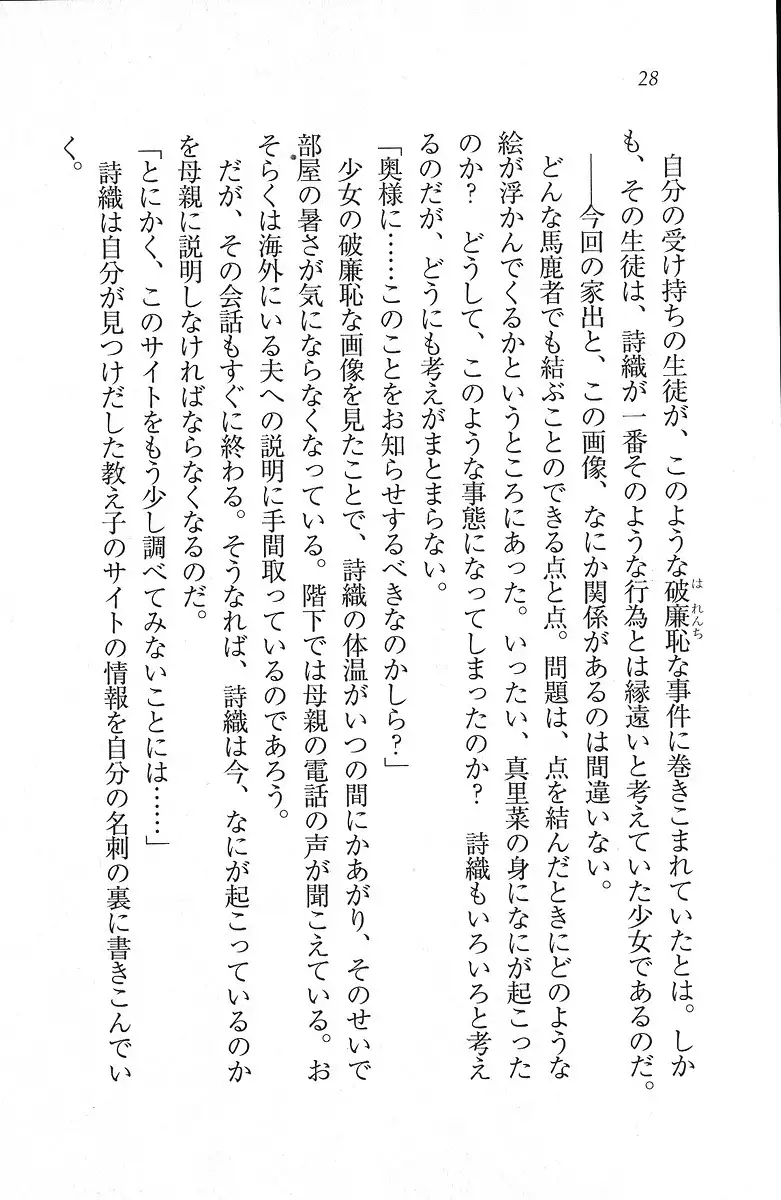 28
自分の受け持ちの生徒が、このような破廉恥な事件に巻きこまれていたとは。しか
はれんち
も、その生徒は、詩織が一番そのような行為とは縁遠いと考えていた少女であるのだ。
――今回の家出と、この画像、なにか関係があるのは間違いない。
どんな馬鹿者でも結ぶことのできる点と点。問題は、点を結んだときにどのような
絵が浮かんでくるかというところにあった。いったい、真里菜の身になにが起こった
のか？　どうして、このような事態になってしまったのか？　詩織もいろいろと考え
るのだが、どうにも考えがまとまらない。
「奥様に……このことをお知らせするべきなのかしら？」
少女の破廉恥な画像を見たことで、詩織の体温がいつの間にかあがり、そのせいで
部屋の暑さが気にならなくなっている。階下では母親の電話の声が聞こえている。お
そらくは海外にいる夫への説明に手間取っているのであろう。
だが、その会話もすぐに終わる。そうなれば、詩織は今、なにが起こっているのか
を母親に説明しなければならなくなるのだ。
「とにかく、このサイトをもう少し調べてみないことには……」
詩織は自分が見つけだした教え子のサイトの情報を自分の名刺の裏に書きこんでい
く。